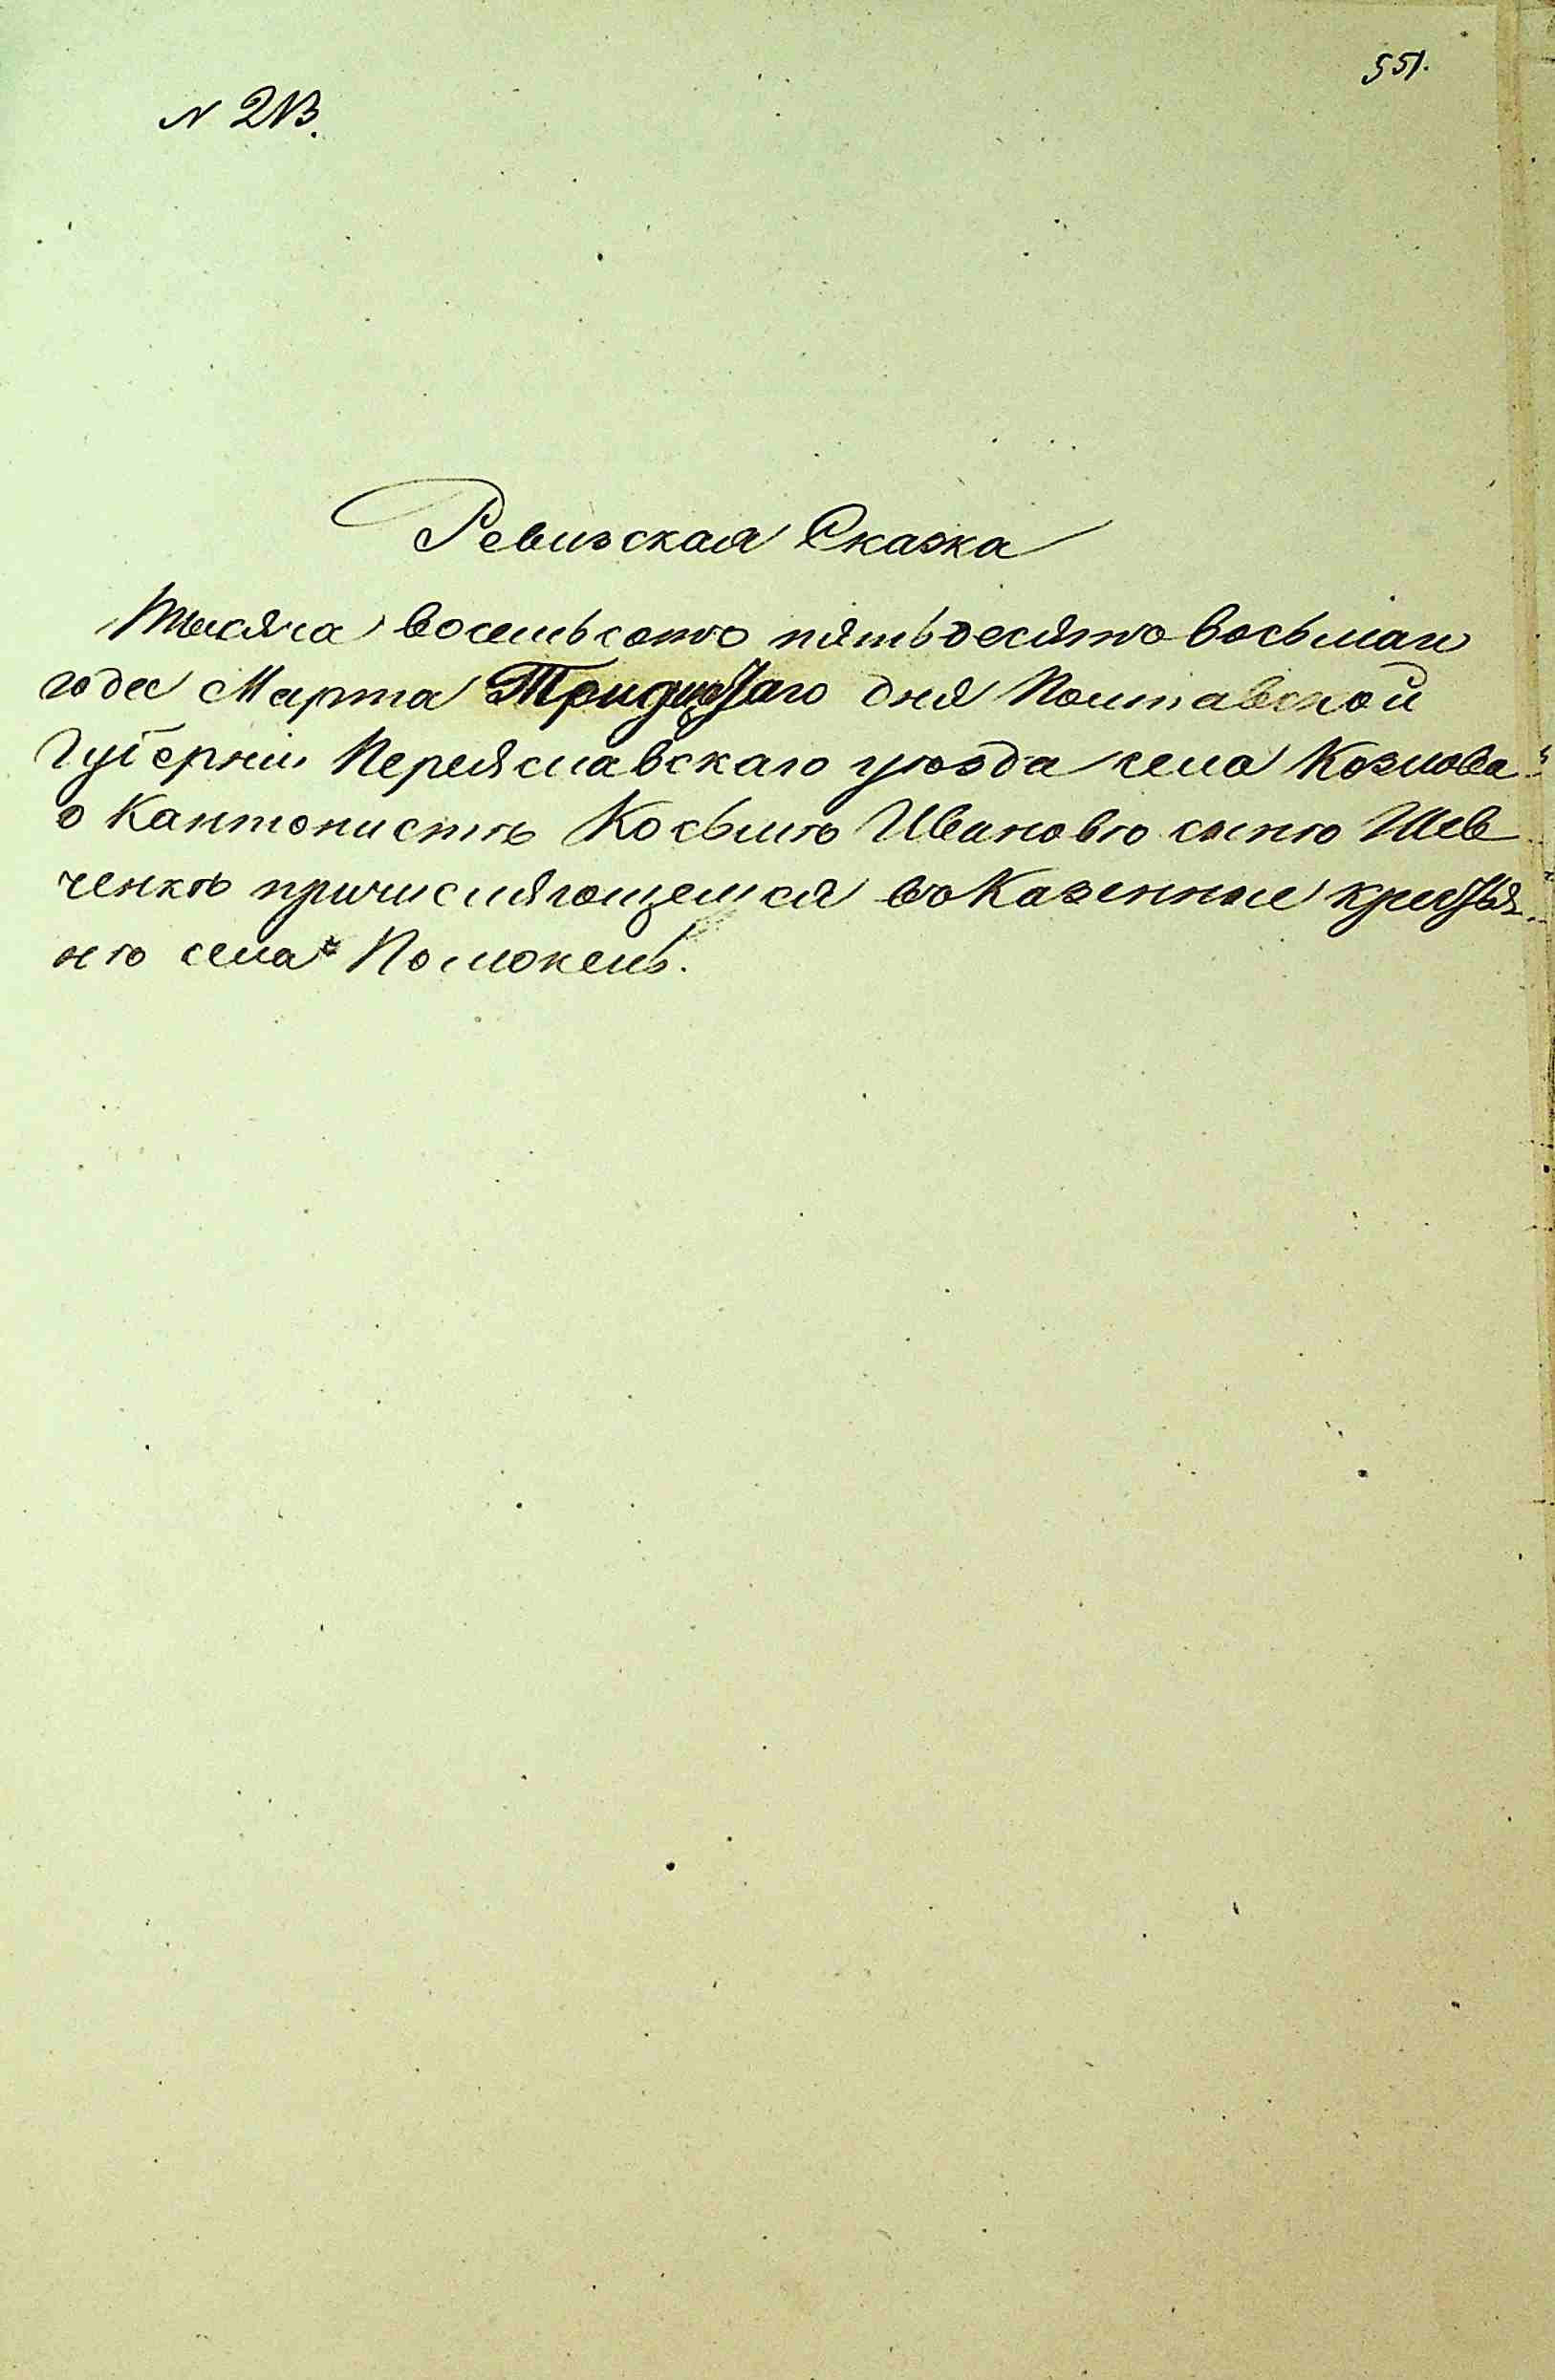 551.
N 213.
Ревизская Сказка
Тысяча восемьсотъ пятьдесятъ восьмаго
года Марта Тридцатаго дня Полтавской
Губерніи Переяславскаго уѣзда села Козлова
о Кантонистѣ Косьмѣ Ивановѣ сынѣ Шев
ченкѣ причисляющемся въ Казенные крестья
нѣ села Помоклей.